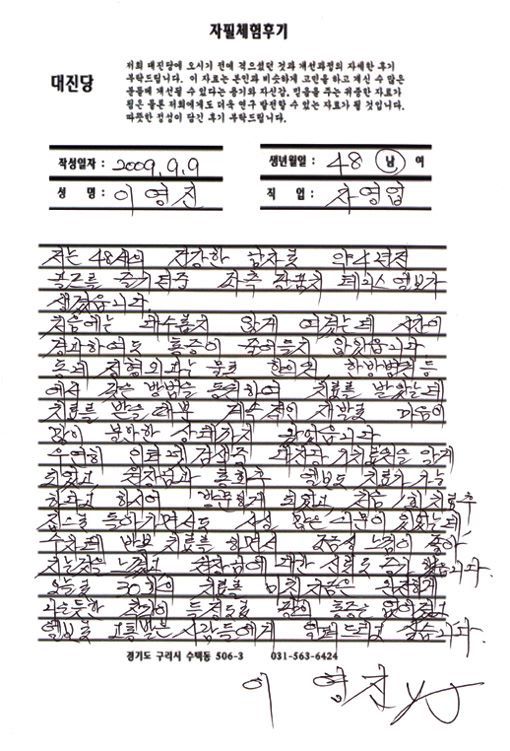 자필체험후기
대진당
저희 대진당에 오시기 전에 겪으셨던 것과 개선과정의 자세한 후기
부탁드립니다. 이 자료는 본인과 비슷하게 고민을 하고 계신 수 많은
분들께 개선될 수 있다는 용기와 자신감, 믿음을 주는 귀중한 자료가
됨은 물론 저희에게도 더욱 연구 발전할 수 있는 자료가 될 것입니다.
따뜻한 정성이 담긴 후기 부탁드립니다.
작성일자 : 2009. 9. 9
생년월일 : 48 남 여
성 명 : 이영진
직 업 : 자영업
저는 48세의 건강한 남자로 약 4년전
골프를 즐기던중 좌측 팔꿈치 테니스 엘보가
생겼습니다.
처음에는 대수롭지 않게 여겼는데 시간이
경과하여도 통증이 줄어들지 않았습니다
동네 정형외과는 물론 한의원 한방병원등
에서 갖은 방법을 동원하여 치료를 받았는데
치료를 받을때뿐 계속적인 재발로 마음이
많이 불안한 상태까지 왔었습니다
우연히 인터넷 검색중 대진당 싸이트를 알게
되었고 원장님과 통화후 엘보도 치료가 가능
하다고 하시어 방문하게 되었고 처음 1회 치료후
집으로 돌아가면서도 사실 많은 의문이 있었는데
수차례 반복 치료를 하면서 조금씩 느낌이 좋아
지는것을 느꼈고 원장님에 대한 신뢰도 증가 했습니다.
오늘로 30회의 치료를 마친 지금은 완전하게
나은듯한 착각이 들정도로 팔의 통증은 없어졌고
엘보로 고통받는 사람들에게 알려드리고 싶습니다.
경기도 구리시 수택동 506-3 031-563-6424
이 영진